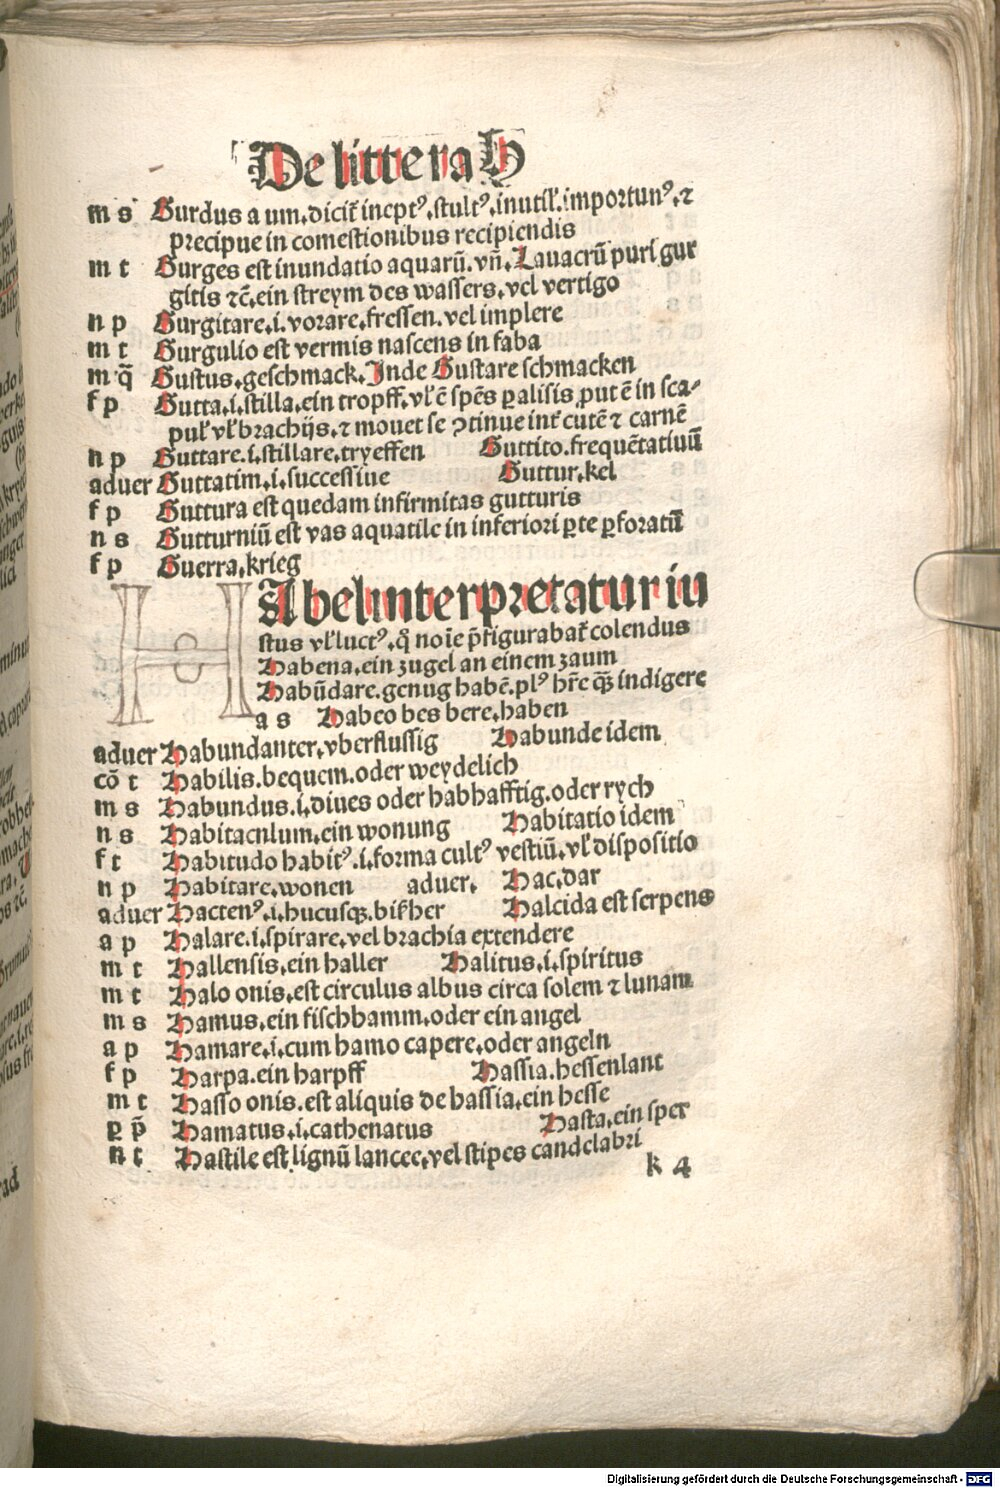 De littera H
m s Gurdus a um.dicit̃ ineptꝰ.stultꝰ.inutil̃.importunꝰ.⁊
precipue in comestionibus recipiendis
m t Gurges est inundatio aquarū.vñ.Lauacrū puri gur
gitis ⁊c̃.ein streym des wassers.vel vertigo
n p Gurgitare.i.vorare.fressen.vel implere
m t Gurgulio est vermis nascens in faba
m q̄ Gustus.geschmack.Inde Gustare schmacken
f p Gutta.i.stilla.ein tropff.vl̃ ē spēs ꝑalisis ꝓut ē in sca⸗
pul̃ vl̃ brachijs.⁊ mouet se ꝯtinue int̃ cutē ⁊ carnē
n p Guttare.i.stillare.tryeffen Guttito.frequētatiuū
aduer Guttatim.i.successiue Guttur.kel
f p Guttura est quedam infirmitas gutturis
n s Gutturniū est vas aquatile in inferiori ꝑte ꝑforatū
f p Guerra.krieg
HAbel interpretatur iu
stus vl̃ luctꝰ.q̊ noīe p̄figurabat̃ colendus
Habena.ein zugel an einem zaum
Habūdare.genug habē.plꝰ hr̄e qꝫ indigere
a s Habeo bes bere.haben
aduer Habundanter.vberflussig Habunde idem
cō t Habilis.bequem.oder weydelich
m s Habundus.i.diues oder habhafftig.oder rych
n s Habitacnlum.ein wonung Habitatio idem
f t Habitudo habitꝰ.i.forma cultꝰ vestiū.vl̃ dispositio
n p Habitare.wonen aduer. Hac.dar
aduer Hactenꝰ.i.hucusqꝫ.bißher Halcida est serpens
a p Halare.i.spirare.vel brachia extendere
m t Hallensis.ein haller Halitus.i.spiritus
m t Halo onis.est circulus albus circa solem ⁊ lunam
m s Hamus.ein fischhamm.oder ein angel
a p Hamare.i.cum hamo capere.oder angeln
f p Harpa.ein harpff Hassia.hessenlant
m t Hasso onis.est aliquis de hassia.ein hesse
ꝑ p̄ Hamatus.i.cathenatus Hasta.ein sper
n t Hastile est lignū lancee.vel stipes candelabri
k 4
Digitalisierung gefördert durch die Deutsche Forschungsgemeinschaft - DFG